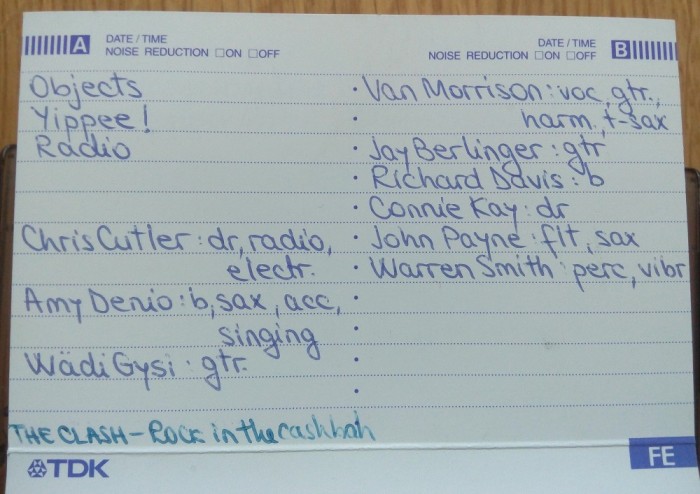 A DATE / TIME
NOISE REDUCTION ☐ON ☐OFF
Objects
Yippee!
Radio
Chris Cutler : dr, radio,
electr.
Amy Denio : b, sax, acc,
singing
Wädi Gysi : gtr.
THE CLASH - ROCK in the cashbah
DATE / TIME B
NOISE REDUCTION ☐ON ☐OFF
• Van Morrison : voc, gtr.,
• harm., t-sax
• Jay Berlinger : gtr
• Richard Davis : b
• Connie Kay : dr
• John Payne : flt, sax
• Warren Smith : perc, vibr
TDK
FE